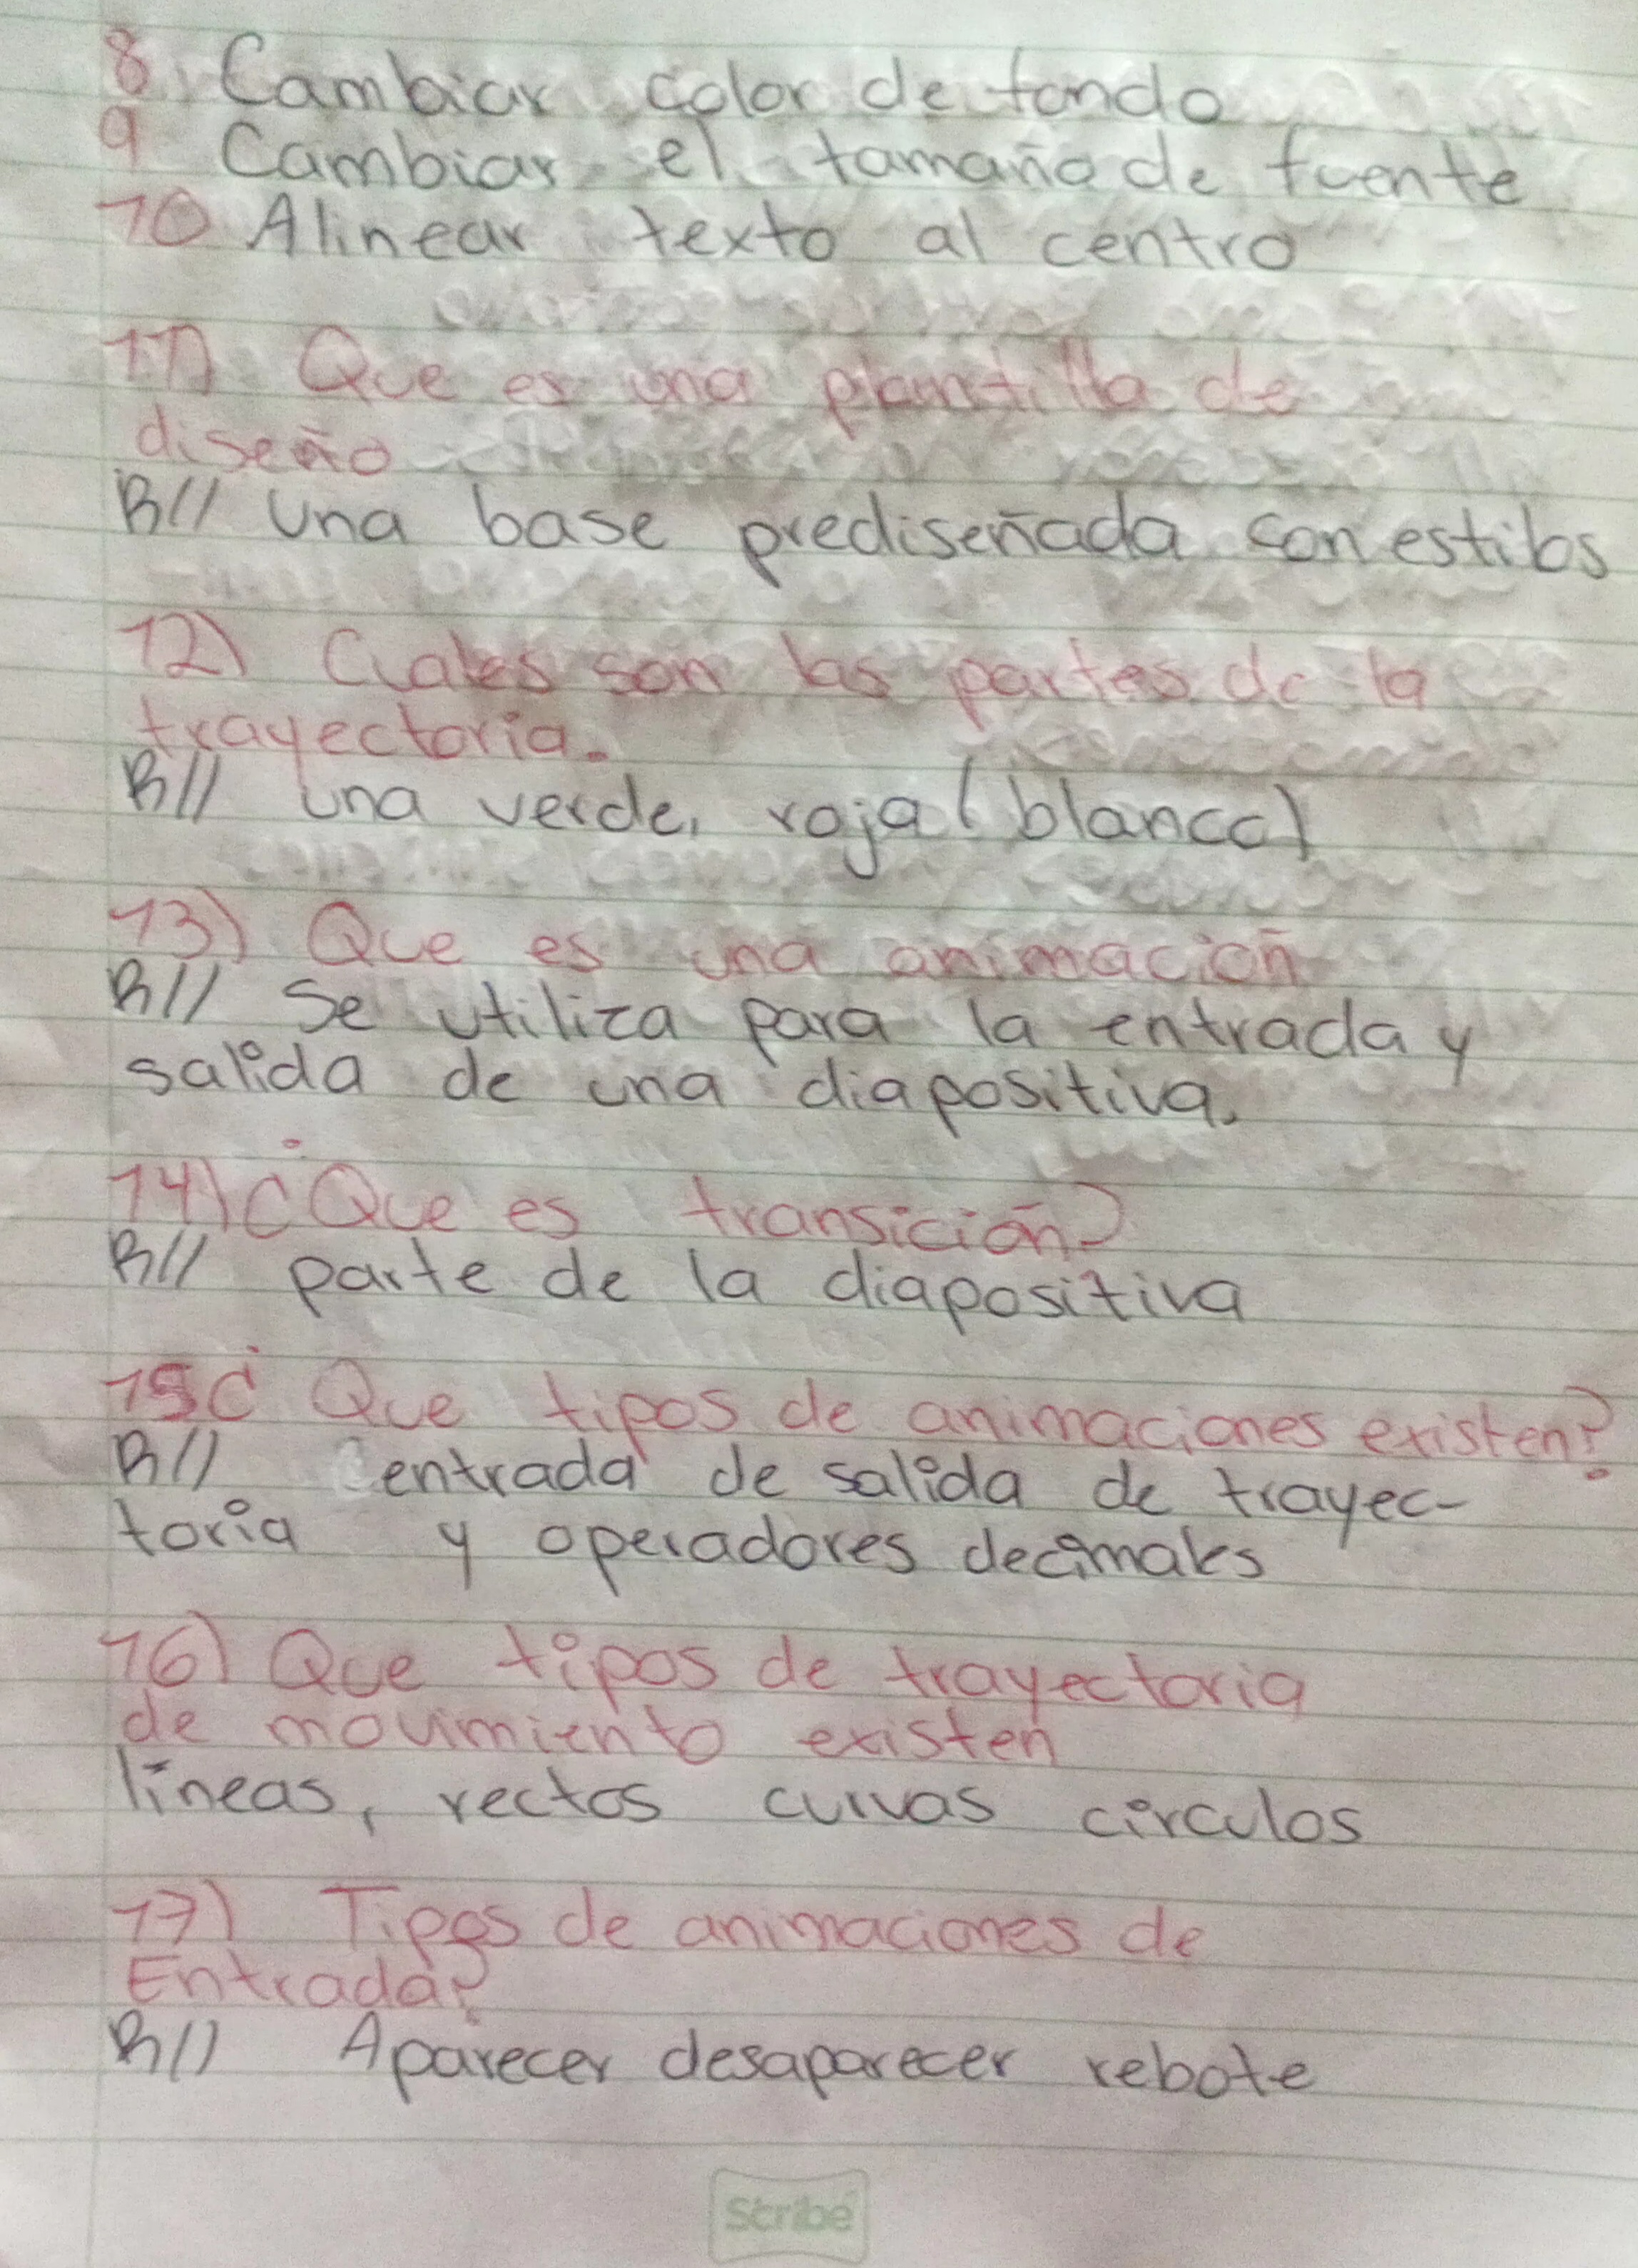 8 Cambiar color de fondo
9 Cambiar el tamaño de fuente
10 Alinear texto al centro
11) Que es una plantilla de
diseño
R// Una base prediseñada con estilos
12) Cuales son las partes de la
trayectoria.
R// una verde, roja (blanco)
13) Que es una animación
R// Se utiliza para la entrada y
salida de una diapositiva.
14) ¿Que es transición?
R// parte de la diapositiva
15 ¿Que tipos de animaciones existen?
R// entrada de salida de trayec-
toria y operadores decimales
16) Que tipos de trayectoria
de movimiento existen
líneas, rectos curvas circulos
17) Tipos de animaciones de
Entrada?
R// Aparecer desaparecer rebote
Scribe